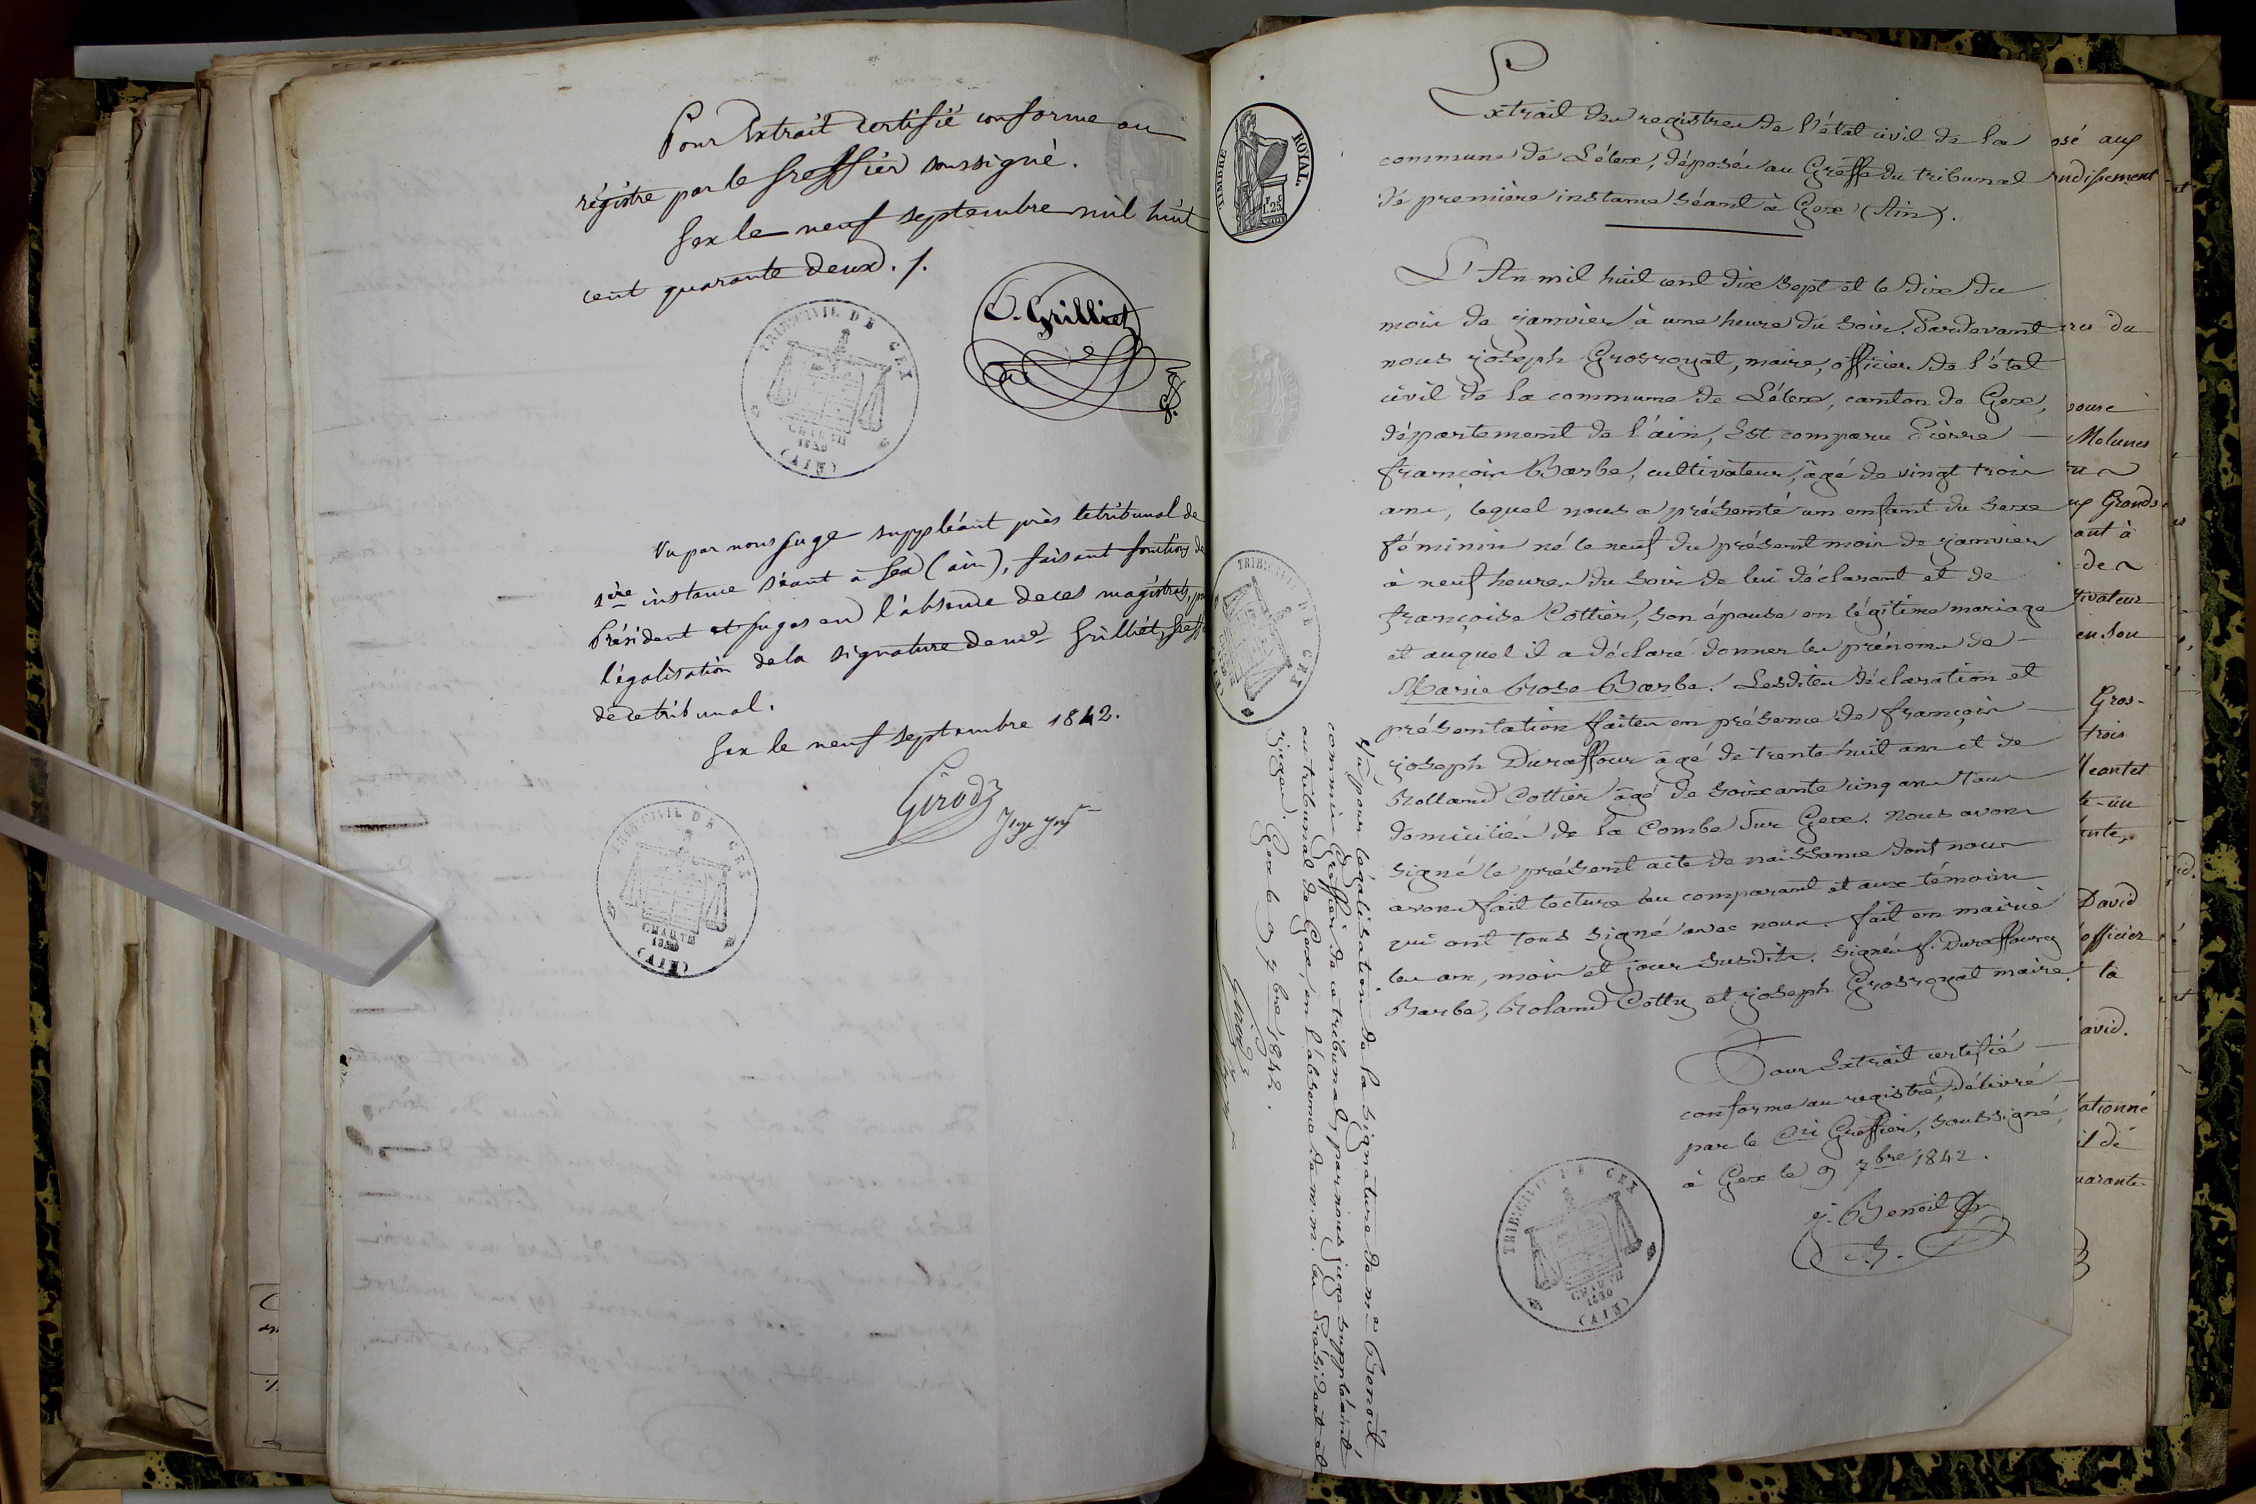 Pour Extrait certifié conforme au
régistre par le Greffier soussigné.
Gex le neuf septembre mil huit
cent quarante deux. /.
O. Grilliet
TRIB. CIVIL DE GEX
CHARTE
1830
(AIN)
Vu par nous Juge suppléant près le tribunal de
1ère instance séant à Gex (ain), faisant fonctions de
Président et Juges en l'absence de ces magistrats, pr
l'égalisation de la signature de me Grilliet, Greff
de ce tribunal.
Gex le neuf septembre 1842.
Girod
TRIB. CIVIL DE GEX
CHARTE
1830
(AIN)
TIMBRE ROYAL.
1.25
Extrait des registres de l'état civil de la
commune de Lélex, déposés au Greffe du tribunal
de première instance séant à Gex (Ain).
L'An mil huit cent dix sept et le dix du
mois de janvier à une heure du soir. Pardevant
nous joseph Grosroyat, maire, officier de l'état
civil de la commune de Lélex, canton de Gex,
département de l'ain, Est comparu Pierre
françois Barbe, cultivateur, âgé de vingt trois
ans, lequel nous a présenté un enfant du sexe
féminin né le neuf du présent mois de janvier
à neuf heures du soir de lui déclarant et de
françoise Cottier, son épouse en légitime mariage
et auquel il a déclaré donner les prénoms de
Marie Rose Barbe. Lesdites déclaration et
présentation faites en présence de françois
joseph Duraffour âgé de trente huit ans et de
Rolland Cottier âgé de soixante cinq ans tous
domiciliés de la Combe Sur Gex. Nous avons
signé le présent acte de naissance dont nous
avons fait lecture au comparant et aux témoins
qui ont tous signé avec nous. fait en mairie
les an, mois et jour susdits. signés f. Duraffourg
Barbe, Roland Cotty et joseph Grosroyat maire.
Pour Extrait certifié
conforme au registre, délivré
par le Cis Greffier, soussigné,
à Gex le 9 7bre 1842.
j. Benoit
TRIB. CIVIL DE GEX
CHARTE
1830
(AIN)
Vu pour légalisation de la signature de me Benoit
commis Greffier de ce tribunal, par nous juge suppléant
au tribunal de Gex, en l'absence de m.m. les Président et
juges. Gex le 9 7bre 1842.
Girod
TRIB. CIVIL DE GEX
osé aux
ndissement
res du
Molunes
ux Grands
ant à
de
tivateur
en son
Gros-
trois
David
officier
la
avid.
ationné
il dé
uarante